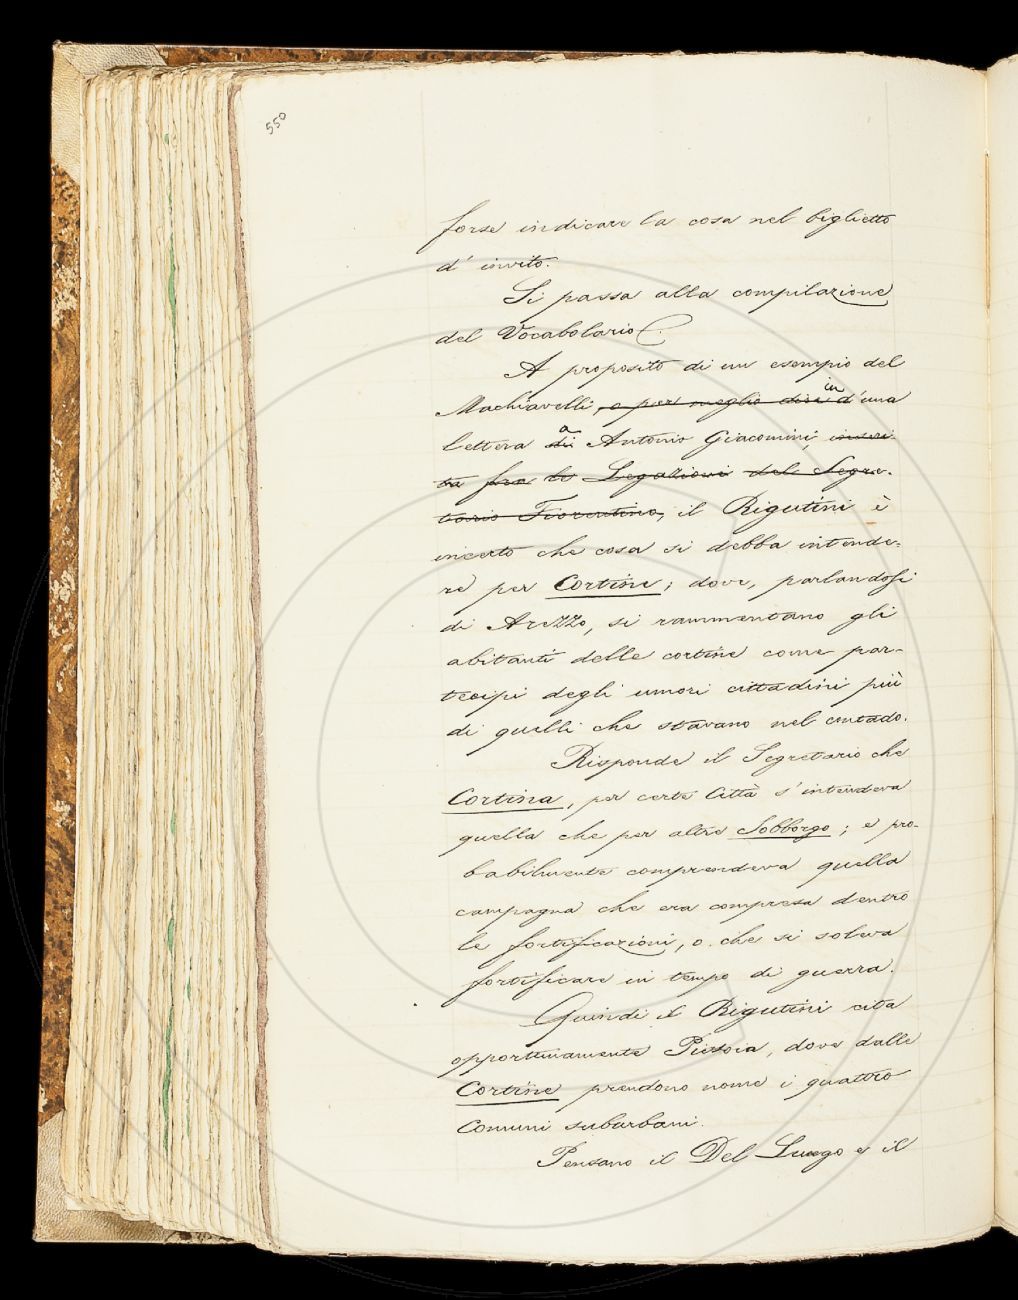 550
forse indicare la cosa nel biglietto
d' invito.
Si passa alla compilazione
del Vocabolario C.
A proposito di un esempio del
Machiavelli, o per meglio dire in d'una
lettera di a Antonio Giacomini, inseri-
ta fra le Legazioni del Segre-
tario Fiorentino, il Rigutini è
incerto che cosa si debba intende-
re per Cortine; dove, parlandosi
di Arezzo, si rammentano gli
abitanti delle cortine come par-
tecipi degli umori cittadini più
di quelli che stavano nel contado.
Risponde il Segretario che
Cortina, per certe Città s'intendeva
quella che per altre Sobborgo; e pro-
babilmente comprendeva quella
campagna che era compresa dentro
le fortificazioni, o che si soleva
fortificare in tempo di guerra.
Quindi il Rigutini cita
opportunamente Pistoia, dove dalle
Cortine prendono nome i quattro
Comuni suburbani.
Pensano il Del Lungo e il